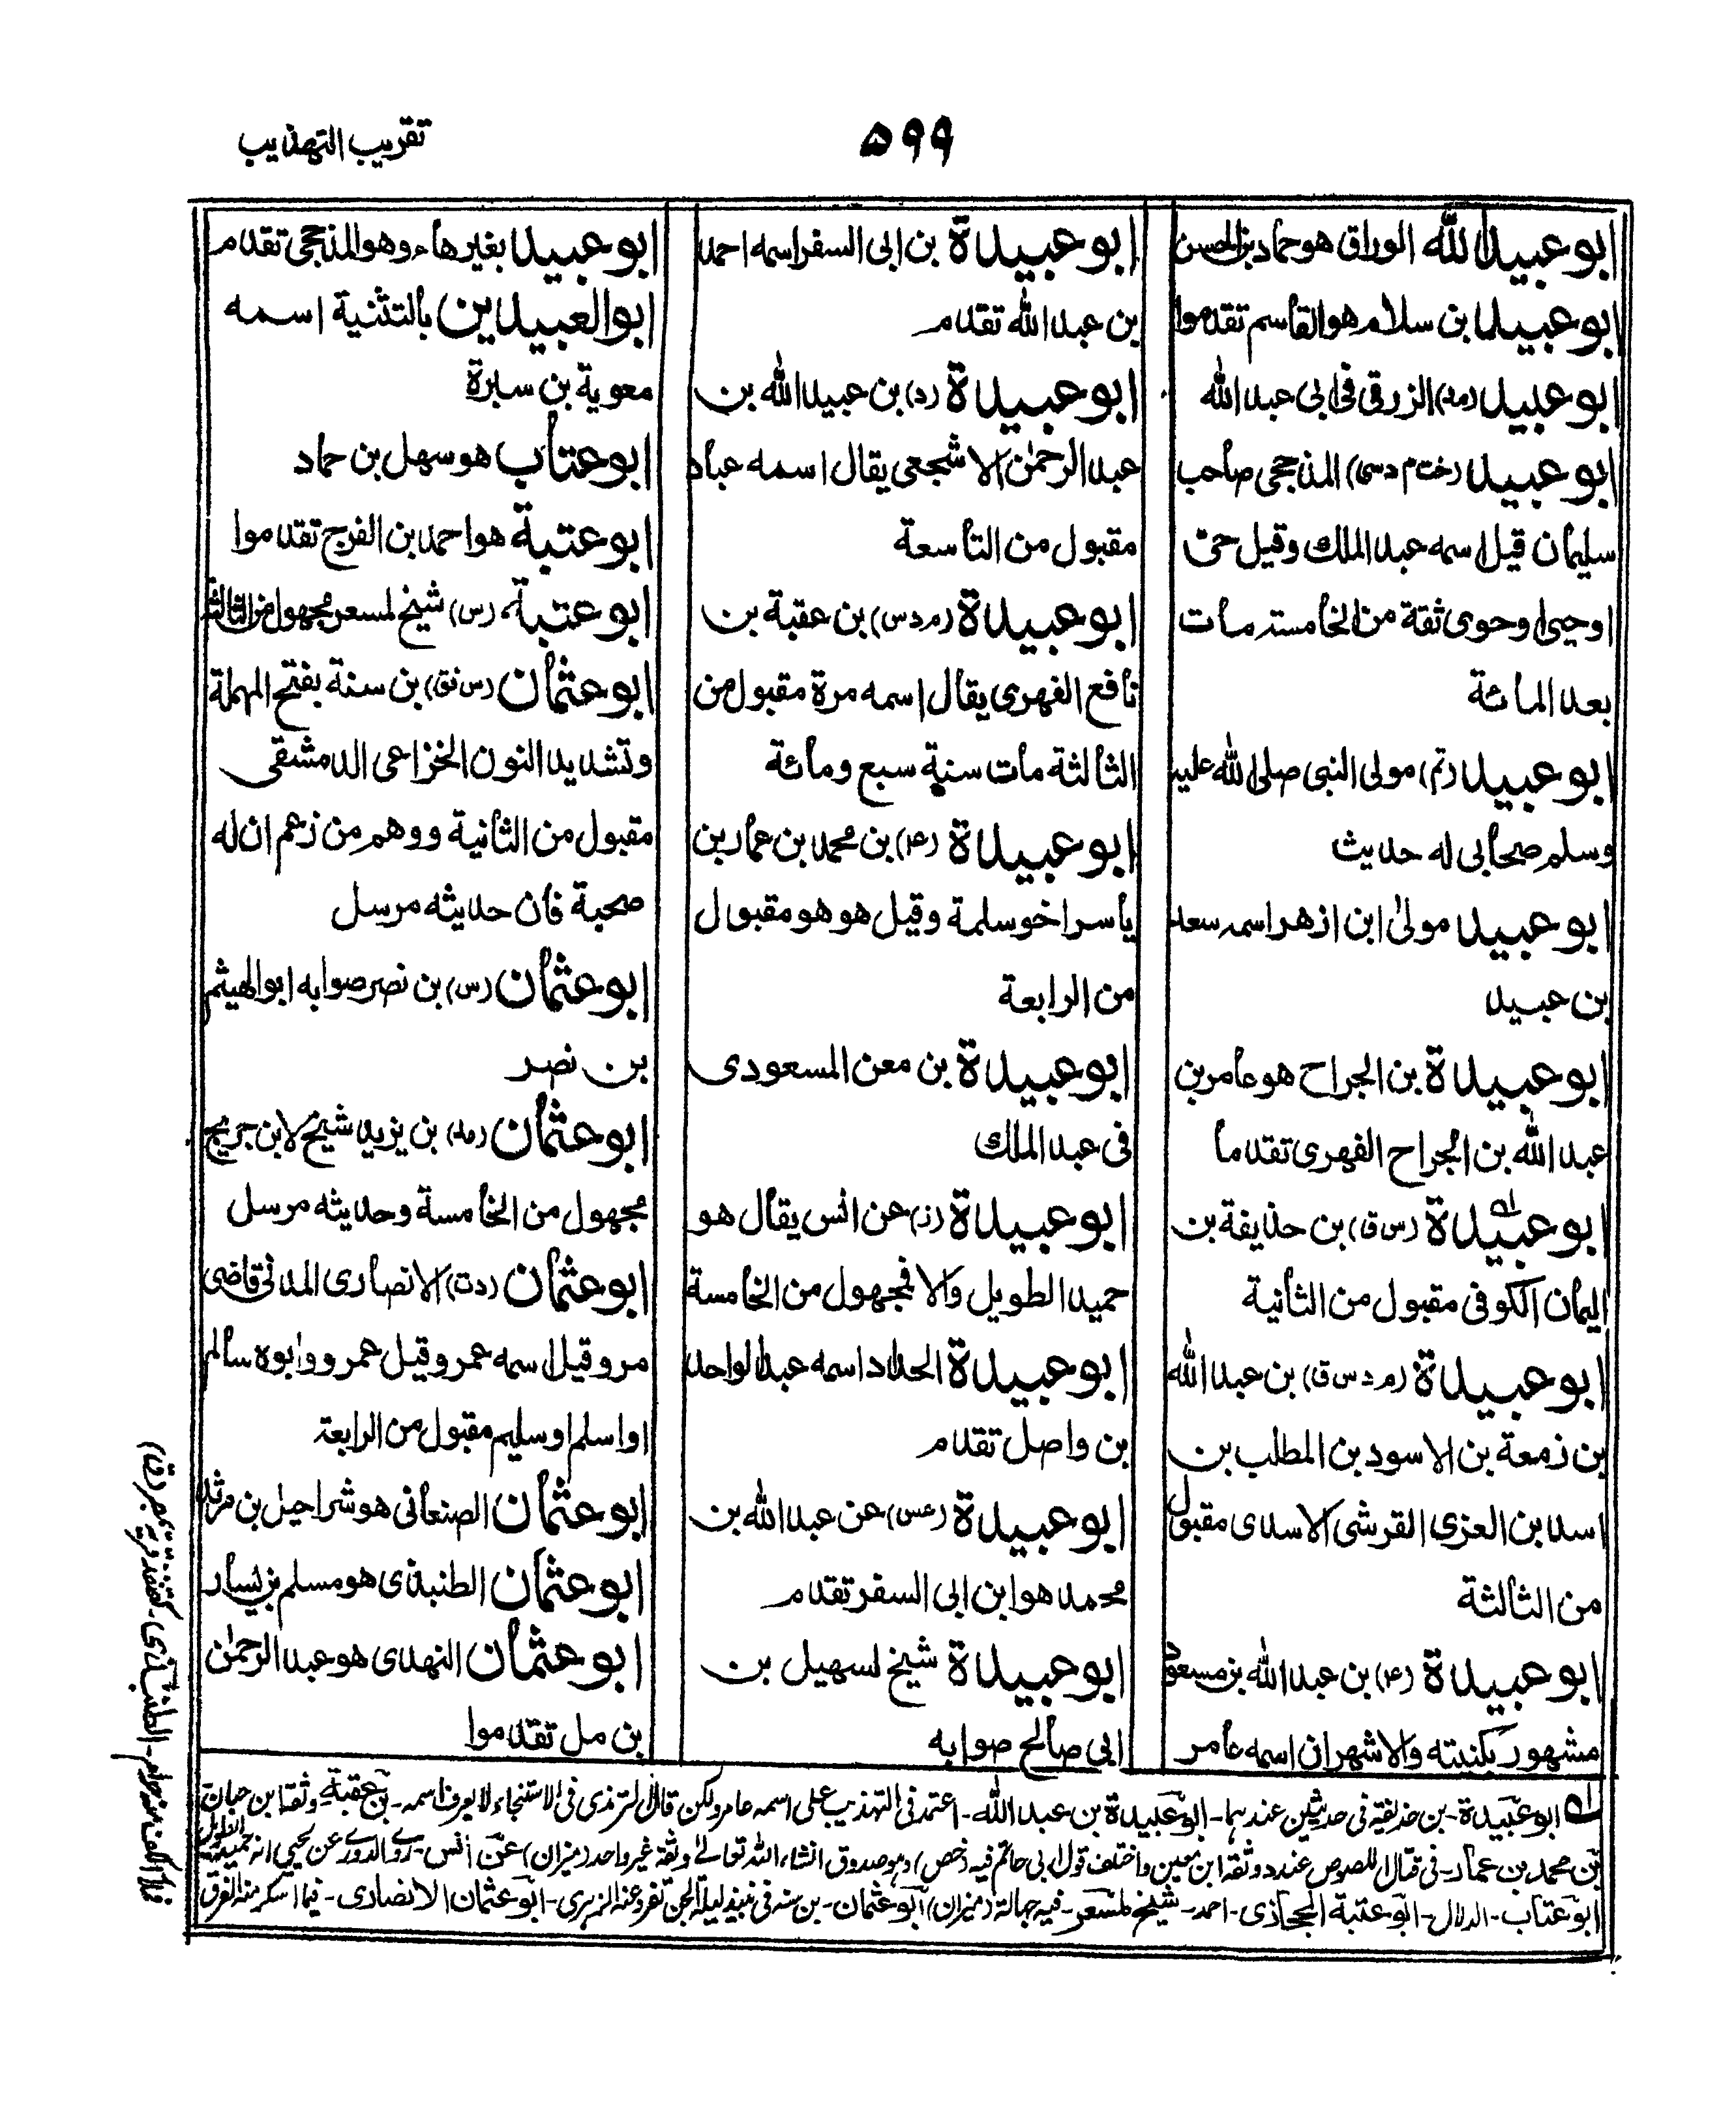 ۵۹۹
تقريب التهذيب
ابو عبيد الله الوراق هو حماد بن الحسن
ابو عبيد بن سلام هو القاسم تقدموا
ابو عبيد (مد) الزرقى فى ابى عبد الله
ابو عبيد (خت م د سى) المذحجى صاحب
سليمان قيل اسمه عبد الملك وقيل حى
او حيى او حوى ثقة من الخامسة مات
بعد المائة
ابو عبيد (تم) مولى النبى صلى الله عليه
وسلم صحابى له حديث
ابو عبيد مولى ابن ازهر اسمه سعد
بن عبيد
ابو عبيدة بن الجراح هو عامر بن
عبد الله بن الجراح الفهرى تقدما
ابو عبيدة (س ق) بن حذيفة بن
اليمان الكوفى مقبول من الثانية
ابو عبيدة (م د س ق) بن عبد الله
بن زمعة بن الاسود بن المطلب بن
اسد بن العزى القرشى الاسدى مقبول
من الثالثة
ابو عبيدة (ع) بن عبد الله بن مسعود
مشهور بكنيته والاشهر ان اسمه عامر
ابو عبيدة بن ابى السفر اسمه احمد
بن عبد الله تقدم
ابو عبيدة (د) بن عبيد الله بن
عبد الرحمن الاشجعى يقال اسمه عباد
مقبول من التاسعة
ابو عبيدة (م د س) بن عقبة بن
نافع الفهرى يقال اسمه مرة مقبول من
الثالثة مات سنة سبع ومائة
ابو عبيدة (ع) بن محمد بن عمار بن
ياسر اخو سلمة وقيل هو هو مقبول
من الرابعة
ابو عبيدة بن معن المسعودى
فى عبد الملك
ابو عبيدة (ز) عن انس يقال هو
حميد الطويل والا فمجهول من الخامسة
ابو عبيدة الحداد اسمه عبد الواحد
بن واصل تقدم
ابو عبيدة (عس) عن عبد الله بن
محمد هو ابن ابى السفر تقدم
ابو عبيدة شيخ لسهيل بن
ابى صالح صوابه
ابو عبيد بغير هاء وهو المذحجى تقدم
ابو العبيدين بالتثنية اسمه
معوية بن سبرة
ابو عتاب هو سهل بن حماد
ابو عتبة هو احمد بن الفرج تقدموا
ابو عتبة (س) شيخ لمسعر مجهول من الثالثة
ابو عثمان (س فق) بن سنة بفتح المهملة
وتشديد النون الخزاعى الدمشقى
مقبول من الثانية ووهم من زعم ان له
صحبة فان حديثه مرسل
ابو عثمان (س) بن نصر صوابه ابو الهيثم
بن نصر
ابو عثمان (مد) بن يزيد شيخ لابن جريج
مجهول من الخامسة وحديثه مرسل
ابو عثمان (د ت) الانصارى المدنى قاضى
مرو قيل اسمه عمر وقيل عمرو وابوه سالم
او اسلم او سليم مقبول من الرابعة
ابو عثمان الصنعانى هو شراحيل بن مرثد
ابو عثمان الطنبذى هو مسلم بن يسار
ابو عثمان النهدى هو عبد الرحمن
بن مل تقدموا
له ابو عبيدة - بن حذيفة فى حديثين عندهما - ابو عبيدة بن عبد الله - اعتمد فى التهذيب على اسمه عامر ولكن قال الترمذى فى الاستنجاء لا يعرف اسمه - بن عقبة وثقه ابن حبان
بن محمد بن عمار - فى قتال اللصوص عند د وثقه ابن معين واختلف قول ابى حاتم فيه (خص) وهو صدوق انشاء الله تعالى وثقه غير واحد (ميزان) عن انس - روى الدورى عن يحيى انه حميد الطويل
ابو عتاب - الدلال - ابو عتبة الحجازى - احمد - شيخ لمسعر - فيه جهالة (ميزان) ابو عثمان - بن سنه فى نبيذ ليلة الجن تفرد عنه الزهرى - ابو عثمان الانصارى - فيما اسكر منه الفرق
فملأ الكف منه حرام - الطنبذى -